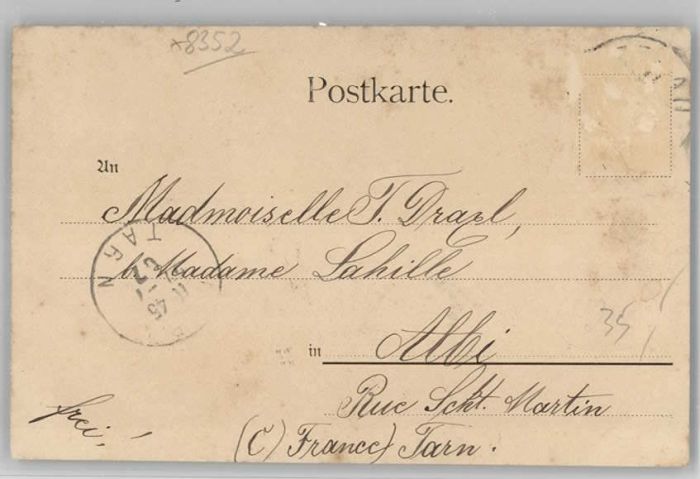 x8352
Postkarte.
An
Madmoiselle T. Draxl,
b. Madame Lahille
TARN
in Albi
35
Rue Scht. Martin
frei!
(C) France) Tarn.